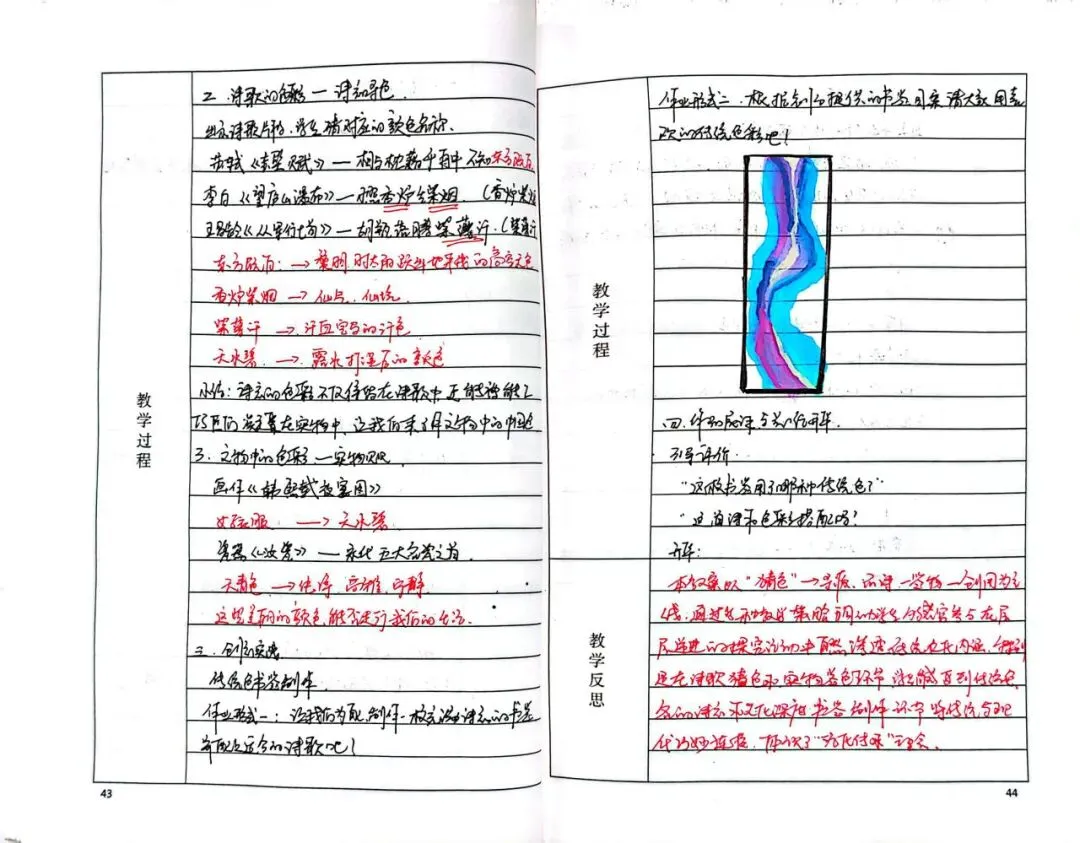 二、诗歌的色彩 — 诗词寻色
出示诗歌片段，学生猜对应的颜色名称.
苏轼《赤壁赋》— 相与枕藉乎舟中 不知东方既白
李白《望庐山瀑布》— 日照香炉生紫烟.（香炉紫烟
王昌龄《从军行七首》— 胡瓶落膊紫薄汗.（紫薄汗
东方既白： → 黎明时太阳跃出地平线的高亮天色
香炉紫烟 → 仙气、仙境
紫薄汗 → 汗血宝马的汗色
天水碧 → 露水打湿后的颜色
小结：诗意的色彩不仅保存在诗歌中，还能被能工
巧匠们凝聚在实物中，让我们来了解文物中的中国色
3. 文物中的色彩 — 实物观
画作《韩熙载夜宴图》
女衣服 → 天水碧
瓷器《汝瓷》— 宋代五大名瓷之首
天青色 → 纯净 高雅 宁静
这些美丽的颜色能否走进我们的生活.
三、创意实践
传统色书签制作
作业形式一：让我们为配制作一枚充满诗意的书签
并配上适合的诗歌吧！
43
教学过程
作业形式二：根据老师提供的书签图案请大家用喜
欢的传统色彩吧！
四、作品展评与总结升华.
引导评价
“这枚书签用了哪种传统色？”
“这首诗和色彩搭配吗？
升华：
本教案以“猜色”→寻源、品诗—鉴物—创用为主
线，通过 调动学生 感官参与在层
层递进的探究活动中自然渗透传统文化内涵，特别
是在诗歌猜色和实物鉴色环节， 直到传统色
名的诗意和文化深度 书签制作环节 将传统与现
代巧妙连接，体现了“文化传承”理念.
教学过程
教学反思
44